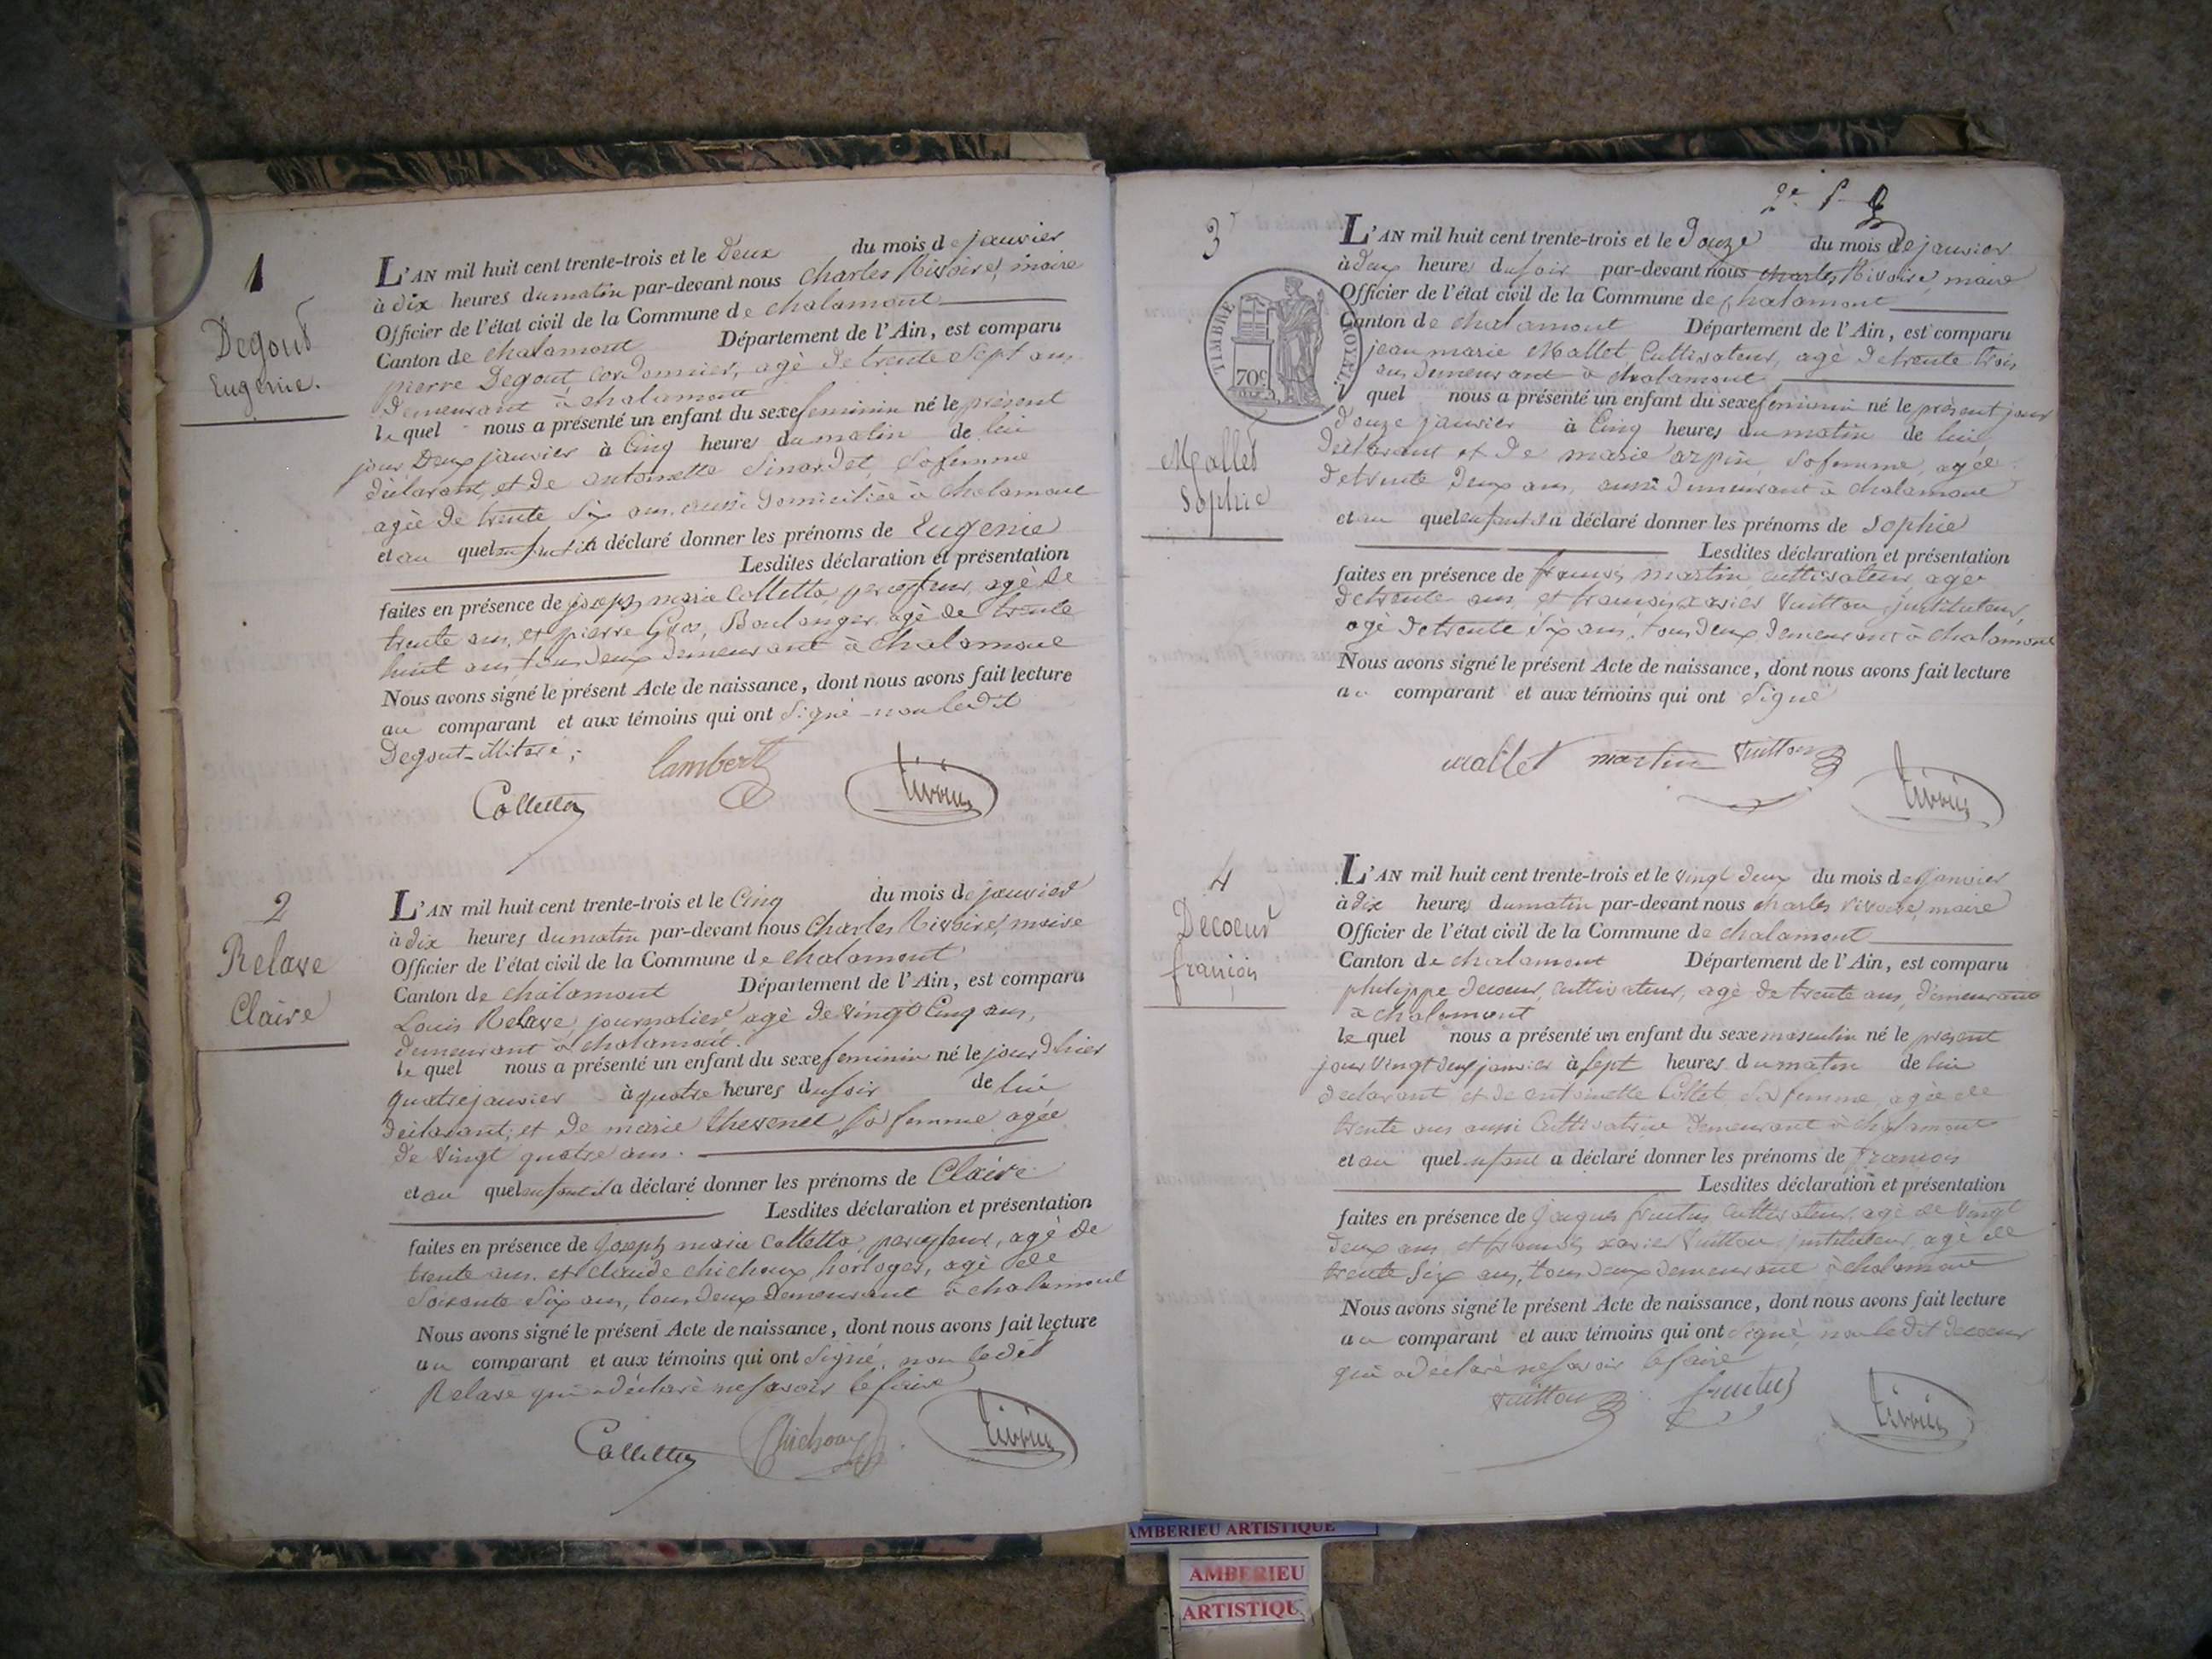 1
Degout
Eugenie.
L'AN mil huit cent trente-trois et le Deux du mois de janvier
à dix heures du matin par-devant nous Charles Rivoire, maire
Officier de l'état civil de la Commune de chalamont
Canton de chalamont Département de l'Ain, est comparu
pierre Degout, Cordonnier, agé de trente Sept ans
Demeurant à chalamont
lequel nous a présenté un enfant du sexe feminin né le présent
jour Deux janvier à Cinq heures du matin de lui
déclarant, et de antoinette Sinardet, Sa femme
agée de trente Six ans, aussi Domiciliée à chalamont
et au quel enfant il a déclaré donner les prénoms de Eugenie
Lesdites déclaration et présentation
faites en présence de joseph marie Colletta, percepteur, agé de
trente ans, et pierre Gros, Boulanger, agé de trente
huit ans, tous deux demeurant à chalamont
Nous avons signé le présent Acte de naissance, dont nous avons fait lecture
au comparant et aux témoins qui ont Signé non ledit
Degout illitéré;
Colletta lambert
2
Relave
Claire
L'AN mil huit cent trente-trois et le Cinq du mois de janvier
à dix heures du matin par-devant nous Charles Rivoire, maire
Officier de l'état civil de la Commune de chalamont
Canton de chalamont Département de l'Ain, est comparu
Louis Relave, journalier, agé de vingt Cinq ans,
demeurant à chalamont.
lequel nous a présenté un enfant du sexe feminin né le jour d'hier
quatre janvier à quatre heures du soir de lui
déclarant, et de marie thevenet Sa femme agée
de vingt quatre ans.
et au quel enfant il a déclaré donner les prénoms de Claire
Lesdites déclaration et présentation
faites en présence de joseph marie Colletta, percepteur, agé de
trente ans, et claude chichoux, horloger, agé de
Soixante Six ans, tous deux demeurant à chalamont
Nous avons signé le présent Acte de naissance, dont nous avons fait lecture
au comparant et aux témoins qui ont Signé, non ledit
Relave qui a déclaré ne savoir le faire
Colletta Chichoux
2e f
3
TIMBRE ROYAL
70c
Mallet
Sophie
L'AN mil huit cent trente-trois et le Douze du mois de janvier
à deux heures du soir par-devant nous charles Rivoire, maire
Officier de l'état civil de la Commune de chalamont
Canton de chalamont Département de l'Ain, est comparu
jean marie Mallet Cultivateur, agé de trente trois
ans, demeurant à chalamont
lequel nous a présenté un enfant du sexe feminin né le présent jour
douze janvier à Cinq heures du matin de lui
déclarant et de marie arpin, Sa femme, agée
de trente Deux ans, aussi demeurant à chalamont
et au quel enfant il a déclaré donner les prénoms de Sophie
Lesdites déclaration et présentation
faites en présence de françois martin Cultivateur, agé
de trente ans, et françois xavier Vuitton, instituteur,
agé de trente Six ans, tous deux demeurant à chalamont
Nous avons signé le présent Acte de naissance, dont nous avons fait lecture
au comparant et aux témoins qui ont Signé
Mallet martin Vuitton
4
Decoeur
françois
L'AN mil huit cent trente-trois et le vingt deux du mois de janvier
à dix heures du matin par-devant nous charles rivoire, maire
Officier de l'état civil de la Commune de chalamont
Canton de chalamont Département de l'Ain, est comparu
philippe decoeur, Cultivateur, agé de trente ans, demeurant
à chalamont
lequel nous a présenté un enfant du sexe masculin né le présent
jour Vingt deux janvier à Sept heures du matin de lui
déclarant et de antoinette Collet, Sa femme, agée de
trente ans aussi Cultivatrice demeurant à chalamont
et au quel enfant a déclaré donner les prénoms de françois
Lesdites déclaration et présentation
faites en présence de jaques fructus Cultivateur, agé de vingt
deux ans, et françois xavier Vuitton, instituteur, agé de
trente Six ans, tous deux demeurant à chalamont
Nous avons signé le présent Acte de naissance, dont nous avons fait lecture
au comparant et aux témoins qui ont signé, non ledit decoeur
qui a déclaré ne savoir le faire
Vuitton fructus
AMBERIEU ARTISTIQUE
AMBERIEU
ARTISTIQU